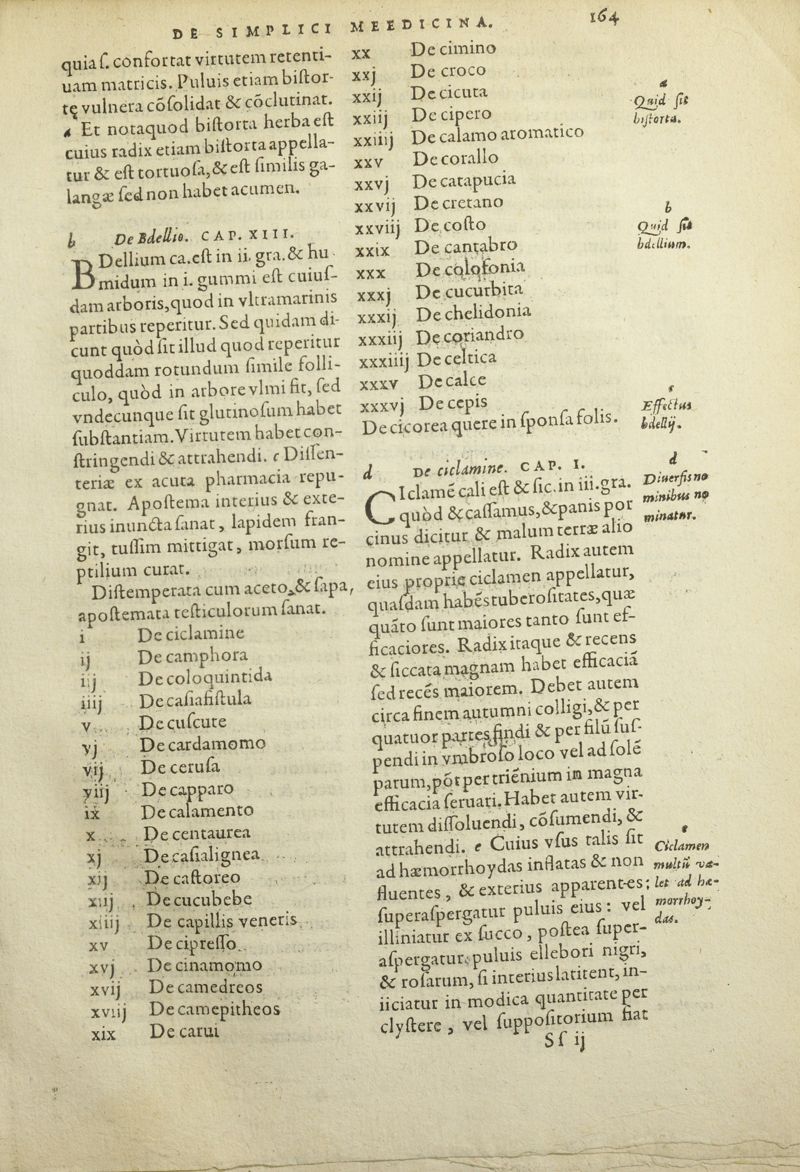 DE SIMPLICI MEEDICINA. 164
quia ſ. confortat virtutem retenti-
uam matricis. Puluis etiam biſtor-
tę vulnera cõſolidat & cõclutinat.
a Et nota quod biſtorta herba eſt
cuius radix etiam biſtorta appella-
tur & eſt tortuoſa, & eſt ſimilis ga-
langæ ſed non habet acumen.
b De Bdellio. CAP. XIII.
BDellium ca. eſt in ii. gra. & hu
midum in i. gummi eſt cuiuſ-
dam arboris, quod in vltramarinis
partibus reperitur. Sed quidam di-
cunt quòd ſit illud quod reperitur
quoddam rotundum ſimile folli-
culo, quòd in arbore vlmi fit, ſed
vndecunque fit glutinoſum habet
ſubſtantiam. Virtutem habet con-
ſtringendi & attrahendi. c Diſſen-
teriæ ex acuta pharmacia repu-
gnat. Apoſtema interius & exte-
rius inuncta ſanat, lapidem fran-
git, tuſſim mittigat, morſum re-
ptilium curat.
Diſtemperata cum aceto, & ſapa,
apoſtemata teſticulorum ſanat.
i De ciclamine
ij De camphora
iij De coloquintida
iiij De caſiafiſtula
v De cuſcute
vj De cardamomo
vij De ceruſa
viij De capparo
ix De calamento
x De centaurea
xj De caſialignea
xij De caſtoreo
xiij De cucubebe
xiiij De capillis veneris
xv De cipreſſo
xvj De cinamomo
xvij De camedreos
xviij De camepitheos
xix De carui
xx De cimino
xxj De croco
xxij De cicuta
xxiij De cipero
xxiiij De calamo aromatico
xxv De corallo
xxvj De catapucia
xxvij De cretano
xxviij De coſto
xxix De cantabro
xxx De colofonia
xxxj De cucurbita
xxxij De chelidonia
xxxiij De coriandro
xxxiiij De celtica
xxxv De calce
xxxvj De cepis
De cicorea quere in ſponſa ſolis.
d De ciclamine. CAP. I.
CIclamẽ cali eſt & ſic. in iii. gra.
quòd & caſſamus, & panis por
cinus dicitur & malum terræ alio
nomine appellatur. Radix autem
eius proprie ciclamen appellatur,
quaſdam habẽs tuberoſitates, quæ
quãto ſunt maiores tanto ſunt ef-
ficaciores. Radix itaque & recens
& ſiccata magnam habet efficaciã
ſed recẽs maiorem. Debet autem
circa finem autumni colligi, & per
quatuor partes findi & per filũ ſuſ-
pendi in vmbroſo loco vel ad ſolẽ
parum, põt per triẽnium in magna
efficacia ſeruari. Habet autem vir-
tutem diſſoluendi, cõſumendi, &
attrahendi. e Cuius vſus talis ſit
ad hæmorrhoydas inflatas & non
fluentes, & exterius apparentes;
ſuperaſpergatur puluis eius: vel
illiniatur ex ſucco, poſtea ſuper-
aſpergatur puluis ellebori nigri,
& roſarum, ſi interius latitent, in-
iiciatur in modica quantitate per
clyſtere, vel ſuppoſitorium fiat
Sſ ij
a
Quid ſit
biſtorta.
b
Quid ſit
bdellium.
c
Effectus
bdellij.
d
Diuerſis no
minibus no
minatur.
e
Ciclamen
multũ va-
let ad hæ-
morrhoy-
das.